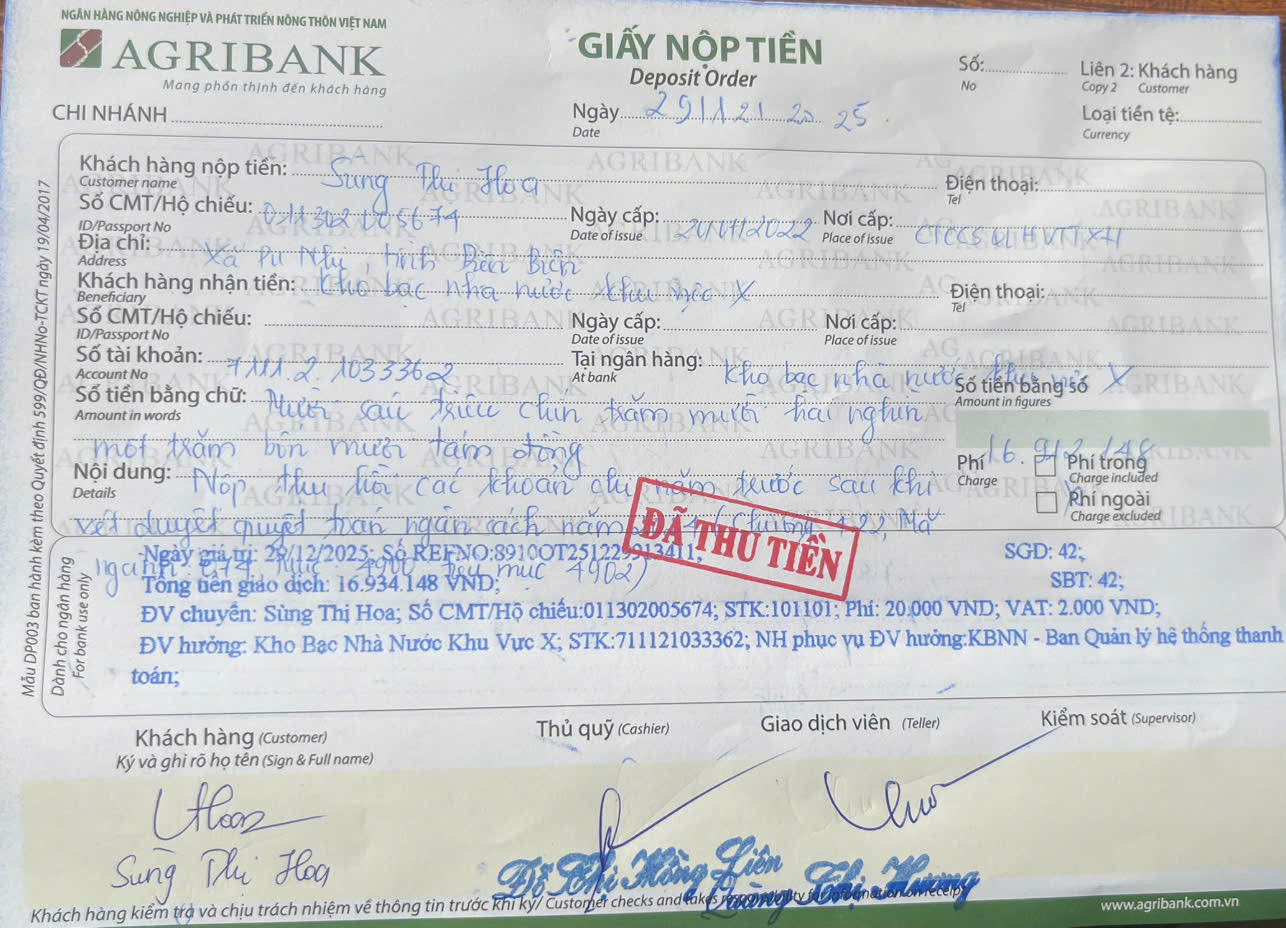 NGÂN HÀNG NÔNG NGHIỆP VÀ PHÁT TRIỂN NÔNG THÔN VIỆT NAM
AGRIBANK
Mang phồn thịnh đến khách hàng
GIẤY NỘP TIỀN
Deposit Order
Số:
No
Liên 2: Khách hàng
Copy 2 Customer
CHI NHÁNH
Ngày 29/12/2025
Date
Loại tiền tệ:
Currency
Khách hàng nộp tiền: Sùng Thị Hoa
Customer name
Điện thoại:
Tel
Số CMT/Hộ chiếu: 011302005674
ID/Passport No
Ngày cấp: 2022
Date of issue
Nơi cấp:
Place of issue
Địa chỉ: Xã Pu Nhi, tỉnh Điện Biên
Address
Khách hàng nhận tiền: Kho bạc nhà nước khu vực X
Beneficiary
Điện thoại:
Tel
Số CMT/Hộ chiếu:
ID/Passport No
Ngày cấp:
Date of issue
Nơi cấp:
Place of issue
Số tài khoản: 7111.2.1033362
Account No
Tại ngân hàng: Kho bạc nhà nước khu vực X
At bank
Số tiền bằng chữ: Mười sáu triệu chín trăm mười hai nghìn
Amount in words
Số tiền bằng số
Amount in figures
một trăm bốn mươi tám đồng
16.912.148
Nội dung: Nộp thu hồi các khoản chi năm trước sau khi
Details
Phí
Charge
Phí trong
Charge included
Phí ngoài
Charge excluded
xét duyệt quyết toán ngân sách năm (Chương 422, Mã
ĐÃ THU TIỀN
ngành 074 mục 4900 tiểu mục 4902)
Mẫu DP003 ban hành kèm theo Quyết định 599/QĐ/NHNo-TCKT ngày 19/04/2017
Dành cho ngân hàng
For bank use only
Ngày giá trị: 29/12/2025; Số REFNO:8910OT251229913411; SGD: 42;
Tổng tiền giao dịch: 16.934.148 VND; SBT: 42;
ĐV chuyển: Sùng Thị Hoa; Số CMT/Hộ chiếu:011302005674; STK:101101; Phí: 20.000 VND; VAT: 2.000 VND;
ĐV hưởng: Kho Bạc Nhà Nước Khu Vực X; STK:711121033362; NH phục vụ ĐV hưởng:KBNN - Ban Quản lý hệ thống thanh
toán;
Khách hàng (Customer)
Ký và ghi rõ họ tên (Sign & Full name)
Thủ quỹ (Cashier)
Giao dịch viên (Teller)
Kiểm soát (Supervisor)
Hoa
Sùng Thị Hoa
Đỗ Thị Hồng Liên
Quàng Thị Hương
Khách hàng kiểm tra và chịu trách nhiệm về thông tin trước khi ký/ Customer checks and takes responsibility for information on receipt
www.agribank.com.vn